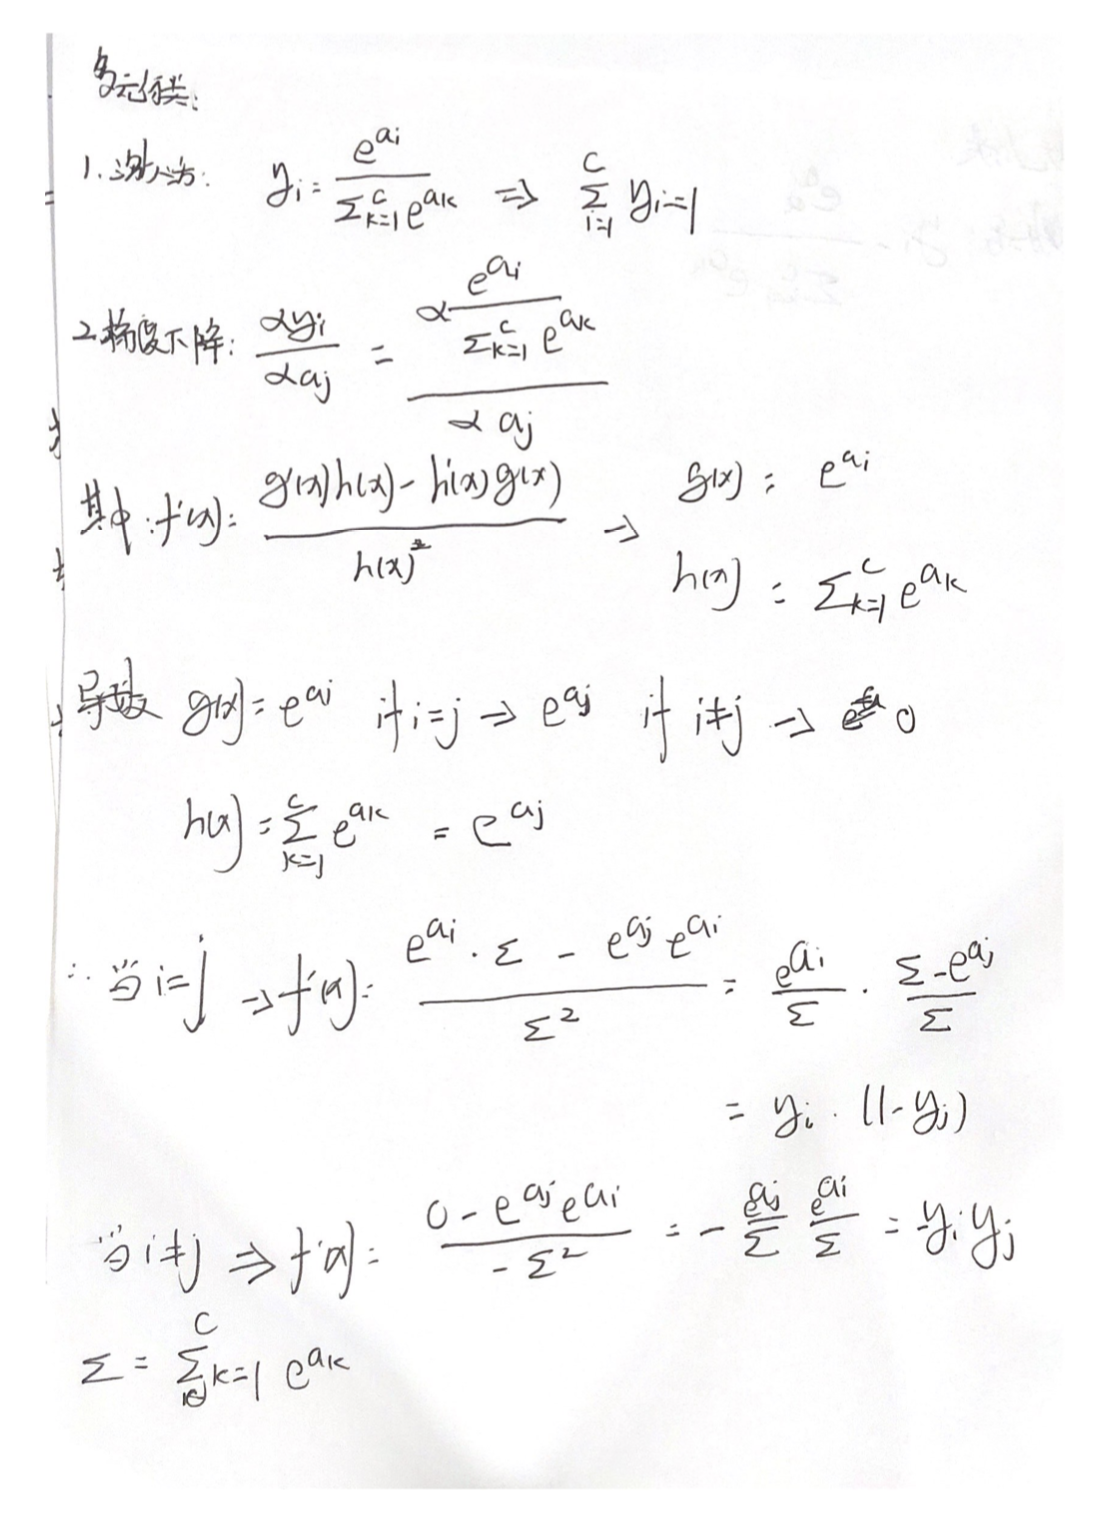 多元分类:
1. 激活: yᵢ = e^{aᵢ} / Σ_{k=1}^{C} e^{aₖ} ⇒ Σ_{i=1}^{C} yᵢ = 1
2. 梯度下降: αyᵢ / αaⱼ = (α e^{aᵢ} / Σ_{k=1}^{C} e^{aₖ}) / α aⱼ
其中: f'(x) = (g'(x)h(x) - h'(x)g(x)) / h(x)² ⇒ g(x) = e^{aᵢ}
h(x) = Σ_{k=1}^{C} e^{aₖ}
导数 g(x) = e^{aᵢ} if i=j → e^{aⱼ} if i≠j → 0
h(x) = Σ_{k=1}^{C} e^{aₖ} = e^{aⱼ}
∴ 当 i=j → f'(x) = (e^{aᵢ} · Σ - e^{aⱼ} e^{aᵢ}) / Σ² = e^{aᵢ}/Σ · (Σ - e^{aⱼ})/Σ
= yᵢ · (1-yⱼ)
当 i≠j ⇒ f'(x) = (0 - e^{aⱼ} e^{aᵢ}) / -Σ² = - e^{aⱼ}/Σ e^{aᵢ}/Σ = -yᵢyⱼ
Σ = Σ_{k=1}^{C} e^{aₖ}